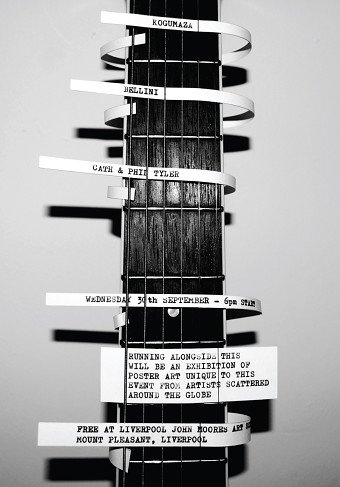 KOGUMAZA
BELLINI
CATH & PHIL TYLER
WEDNESDAY 30th SEPTEMBER - 6pm START
RUNNING ALONGSIDE THIS
WILL BE AN EXHIBITION OF
POSTER ART UNIQUE TO THIS
EVENT FROM ARTISTS SCATTERED
AROUND THE GLOBE
FREE AT LIVERPOOL JOHN MOORES ART
MOUNT PLEASANT, LIVERPOOL